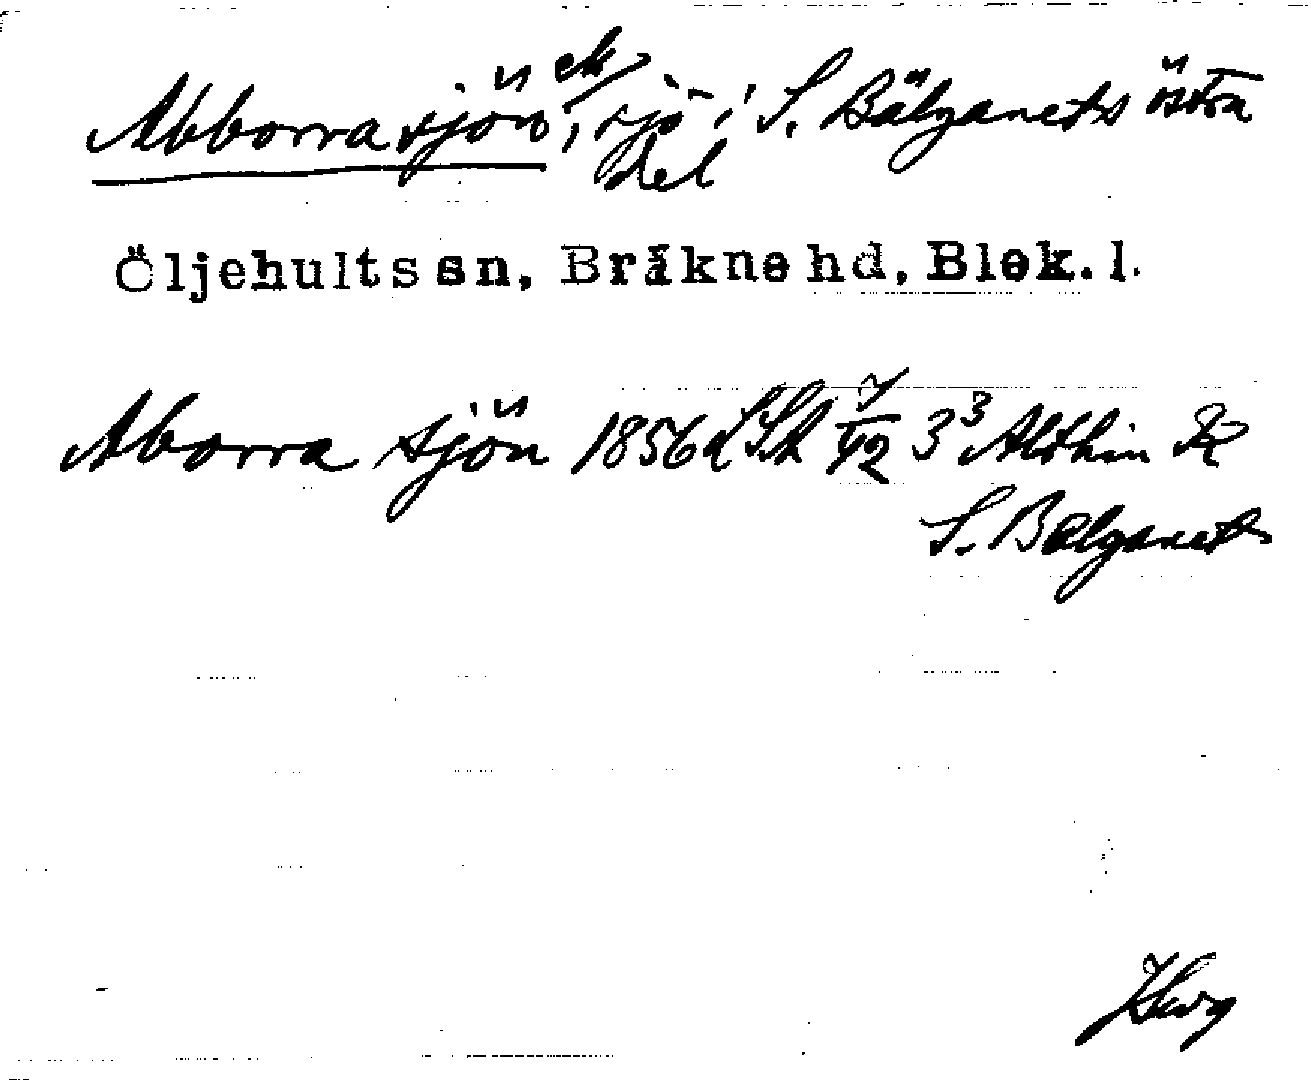 Abborrasjön, sjö i S. Bälganets östra
del
Öljehults sn, Bräkne hd, Blek. l.
Aborra sjön 1856 LSA 3³ Althin K
S. Bälganet